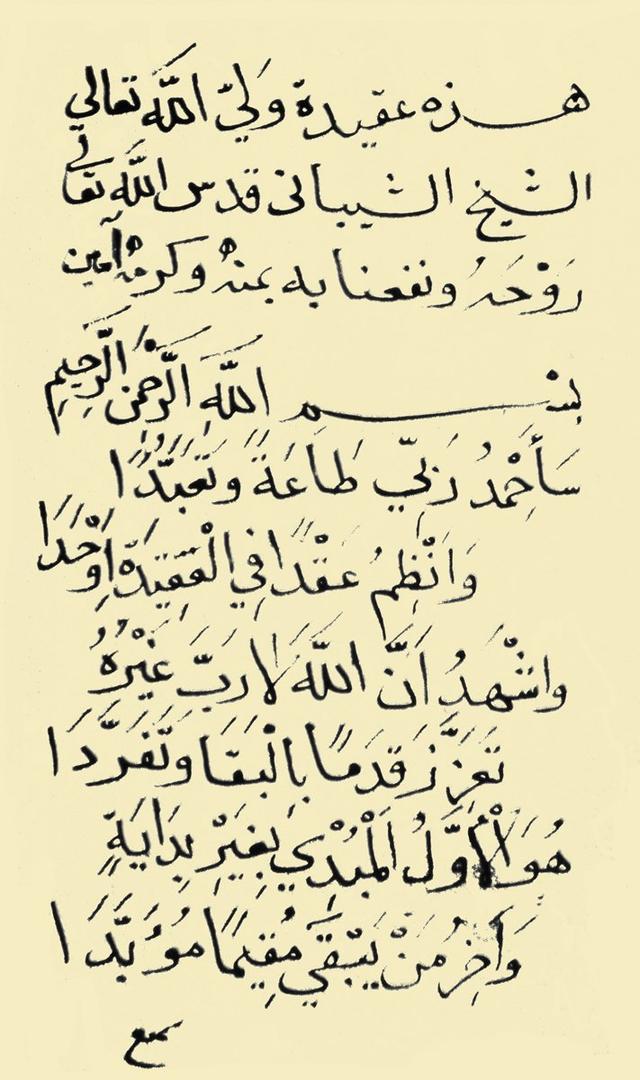 هذه عقيدة وليّ اللّه تعالي
الشيخ الشيباني قدس اللّه تعالى
رَوْحَهُ ونفعنا به بمنهُ وكرمهُ آمين
بسْم اللَّهِ الرَّحمن الرَّحِيمِ
سَأَحْمَدُ رَبّي طَاعَةً وتَعَبُّدًا
وَانْظِمُ عقْدًا فِي الْعَقيدَةِ اَوْحَدَا
واشْهَدُ اَنَّ اللَّهَ لَا رَبَّ غَيْرُهُ
تَعَزَّزَ قدَمًا بِالْبَقَا وَتَفَرَّدَا
هُوَ الْأَوَّلُ الْمُبْدِي بِغَيْرِ بِدَايَةٍ
وَآخِرُ مَنْ يَبْقَي مُقِيمًا مُؤَبَّدَا